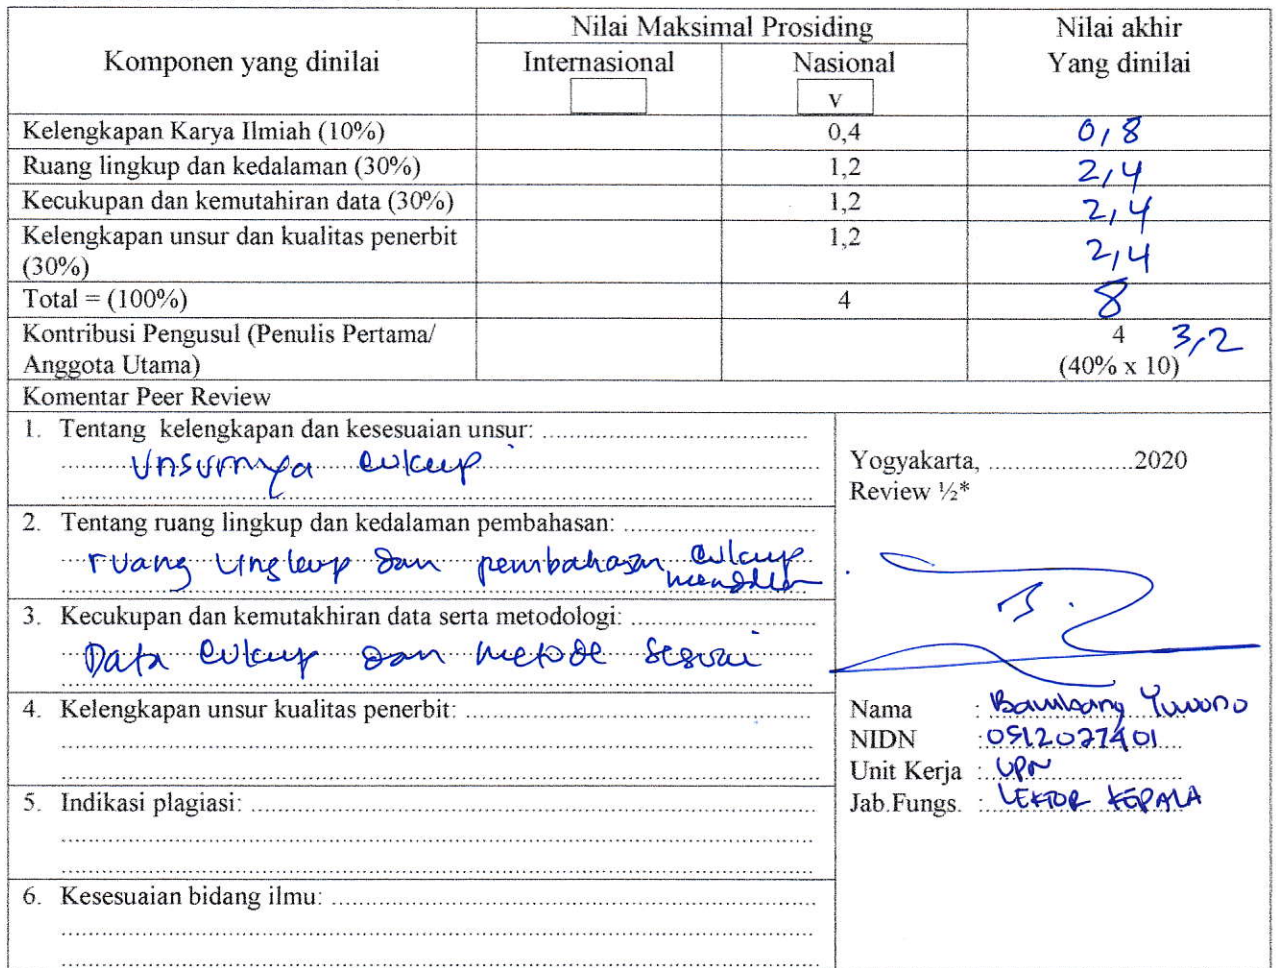 Komponen yang dinilai
Nilai Maksimal Prosiding
Nilai akhir
Yang dinilai
Internasional
Nasional
v
Kelengkapan Karya Ilmiah (10%) 0,4 0,8
Ruang lingkup dan kedalaman (30%) 1,2 2,4
Kecukupan dan kemutahiran data (30%) 1,2 2,4
Kelengkapan unsur dan kualitas penerbit 1,2 2,4
(30%)
Total = (100%) 4 8
Kontribusi Pengusul (Penulis Pertama/ 4 3,2
Anggota Utama) (40% x 10)
Komentar Peer Review
1. Tentang kelengkapan dan kesesuaian unsur:
Unsurnya cukup
2. Tentang ruang lingkup dan kedalaman pembahasan:
ruang lingkup dan pembahasan cukup
mendalam
3. Kecukupan dan kemutakhiran data serta metodologi:
Data cukup dan metode sesuai
4. Kelengkapan unsur kualitas penerbit:
5. Indikasi plagiasi:
6. Kesesuaian bidang ilmu:
Yogyakarta, 2020
Review ½*
Nama : Bambang Yuwono
NIDN : 0512027401
Unit Kerja : UPN
Jab.Fungs. : LEKTOR KEPALA